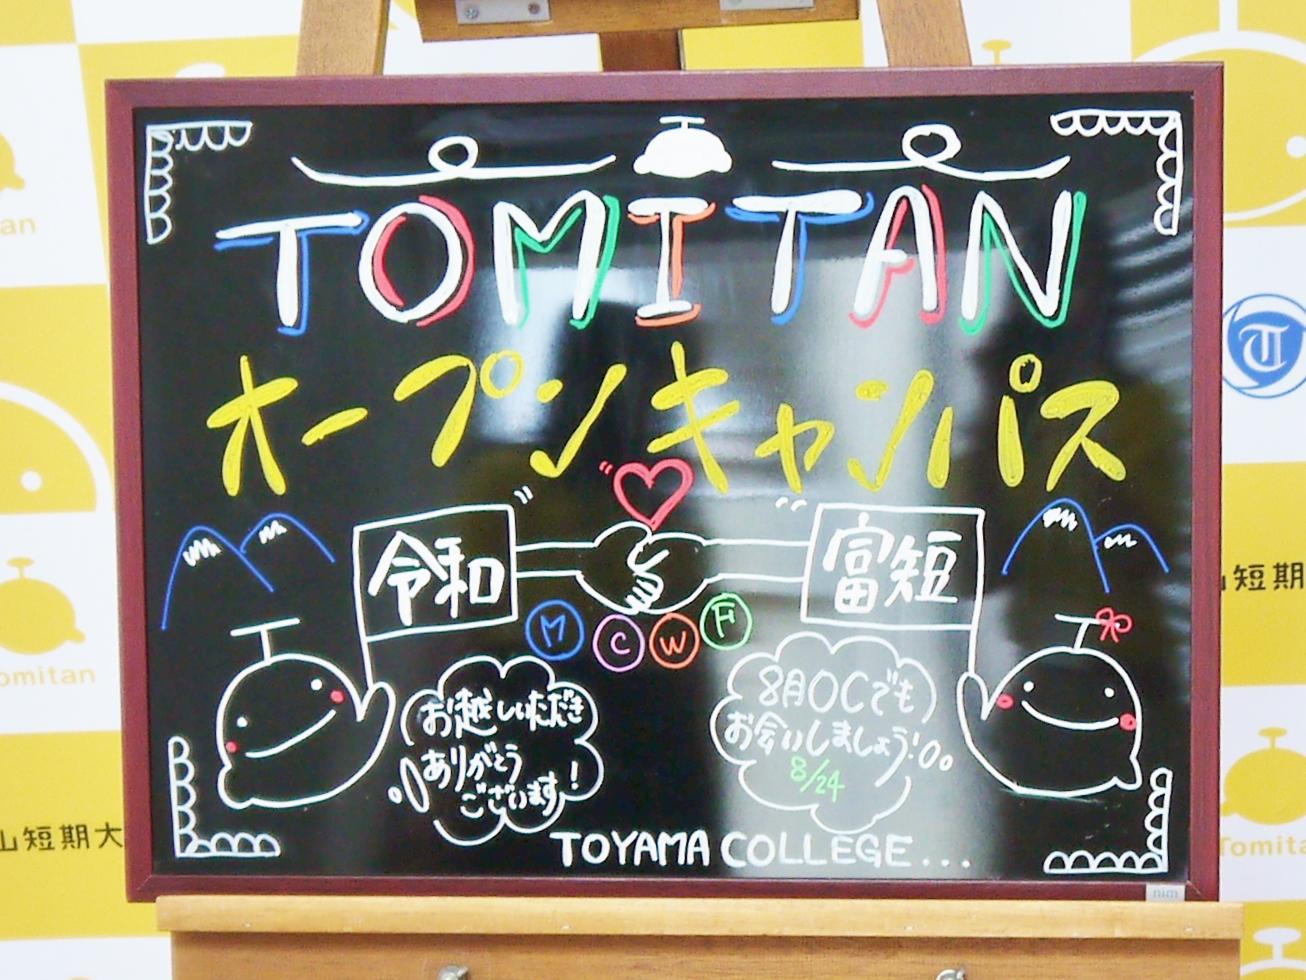 TOMITAN
オープンキャンパス
令和
富短
M C W F
お越しいただき
ありがとう
ございます!
8月OCでも
お会いしましょう!
8/24
TOYAMA COLLEGE...
nim
an
omitan
山短期大
山短期
Tomita
T